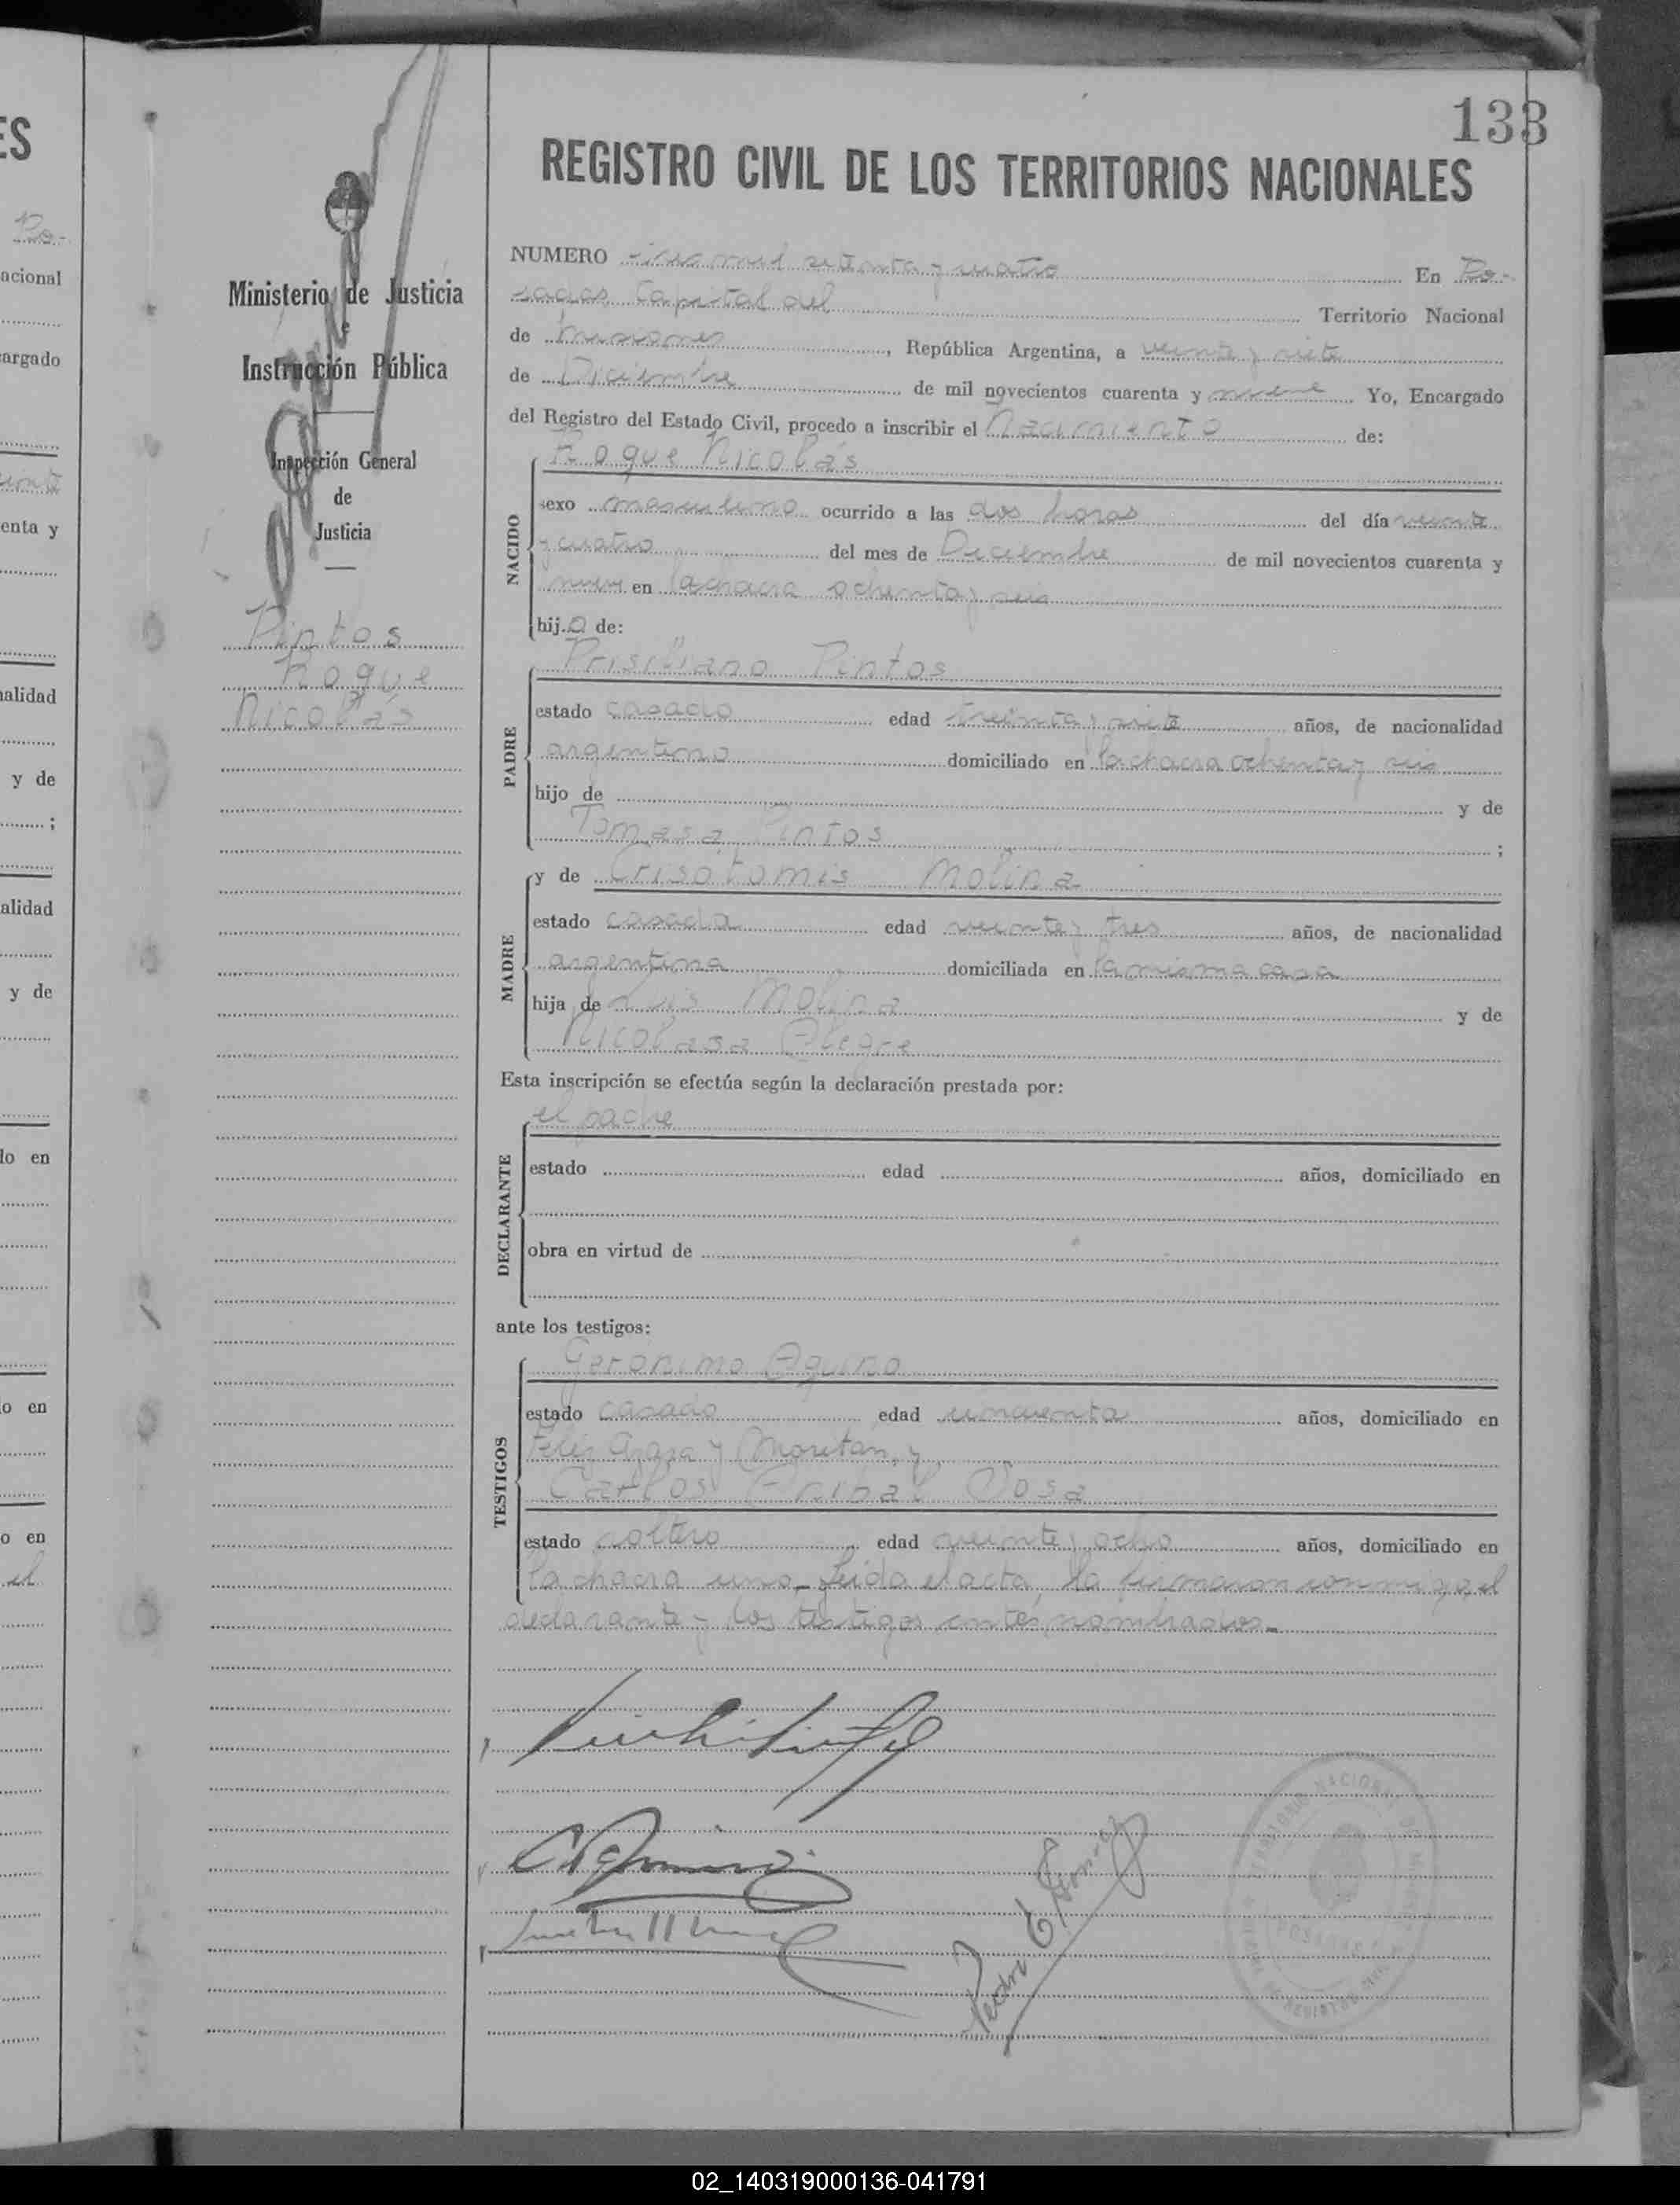 133
REGISTRO CIVIL DE LOS TERRITORIOS NACIONALES
Ministerio de Justicia
e
Instrucción Pública
Inspección General
de
Justicia
Pintos
Roque
Nicolás
NUMERO mil setenta y cuatro En Po-
sadas Capital del Territorio Nacional
de Misiones, República Argentina, a veinte y siete
de Diciembre de mil novecientos cuarenta y nueve Yo, Encargado
del Registro del Estado Civil, procedo a inscribir el Nacimiento de:
Roque Nicolás
NACIDO
sexo masculino ocurrido a las dos horas del día veinte
y cuatro del mes de Diciembre de mil novecientos cuarenta y
nueve en la chacra ochenta y seis
hij.o de:
Prisiliano Pintos
PADRE
estado casado edad treinta y siete años, de nacionalidad
argentino domiciliado en la chacra ochenta y seis
hijo de y de
Tomasa Pintos ;
y de Crisótomis Molina
MADRE
estado casada edad veinte y tres años, de nacionalidad
argentina domiciliada en la misma casa
hija de Luis Molina y de
Nicolasa Alegre
Esta inscripción se efectúa según la declaración prestada por:
el padre
DECLARANTE
estado edad años, domiciliado en
obra en virtud de
ante los testigos:
Gerónimo Aquino
TESTIGOS
estado casado edad cincuenta años, domiciliado en
Félix Azara y Moritán, y
Carlos Anibal Sosa
estado soltero edad veinte y ocho años, domiciliado en
la chacra uno_ Leída el acta, la firmaron conmigo, el
declarante y los testigos antes nombrados._
Pedro
POSADAS
ES
Po-
acional
argado
enta y
alidad
y de
;
alidad
y de
do en
o en
o en
el
02_140319000136-041791